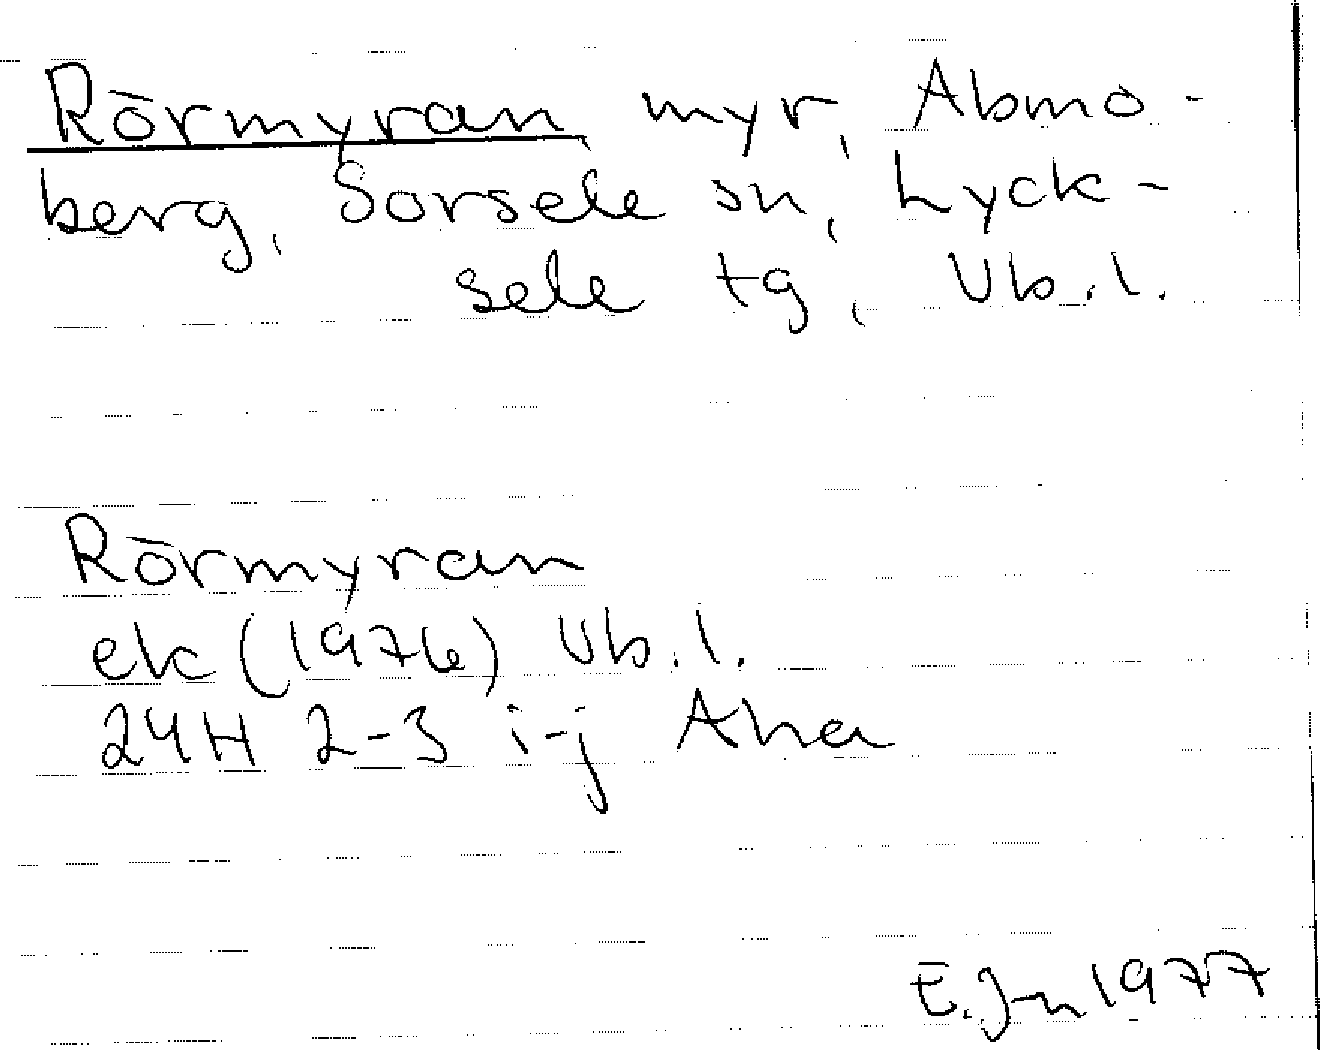 Rörmyran myr, Abmo-
berg, Sorsele sn, Lyck-
sele tg, Vb.l.
Rörmyran
ek (1976) Vb.l.
24H 2-3 i-j Aha
E. Jn 1977